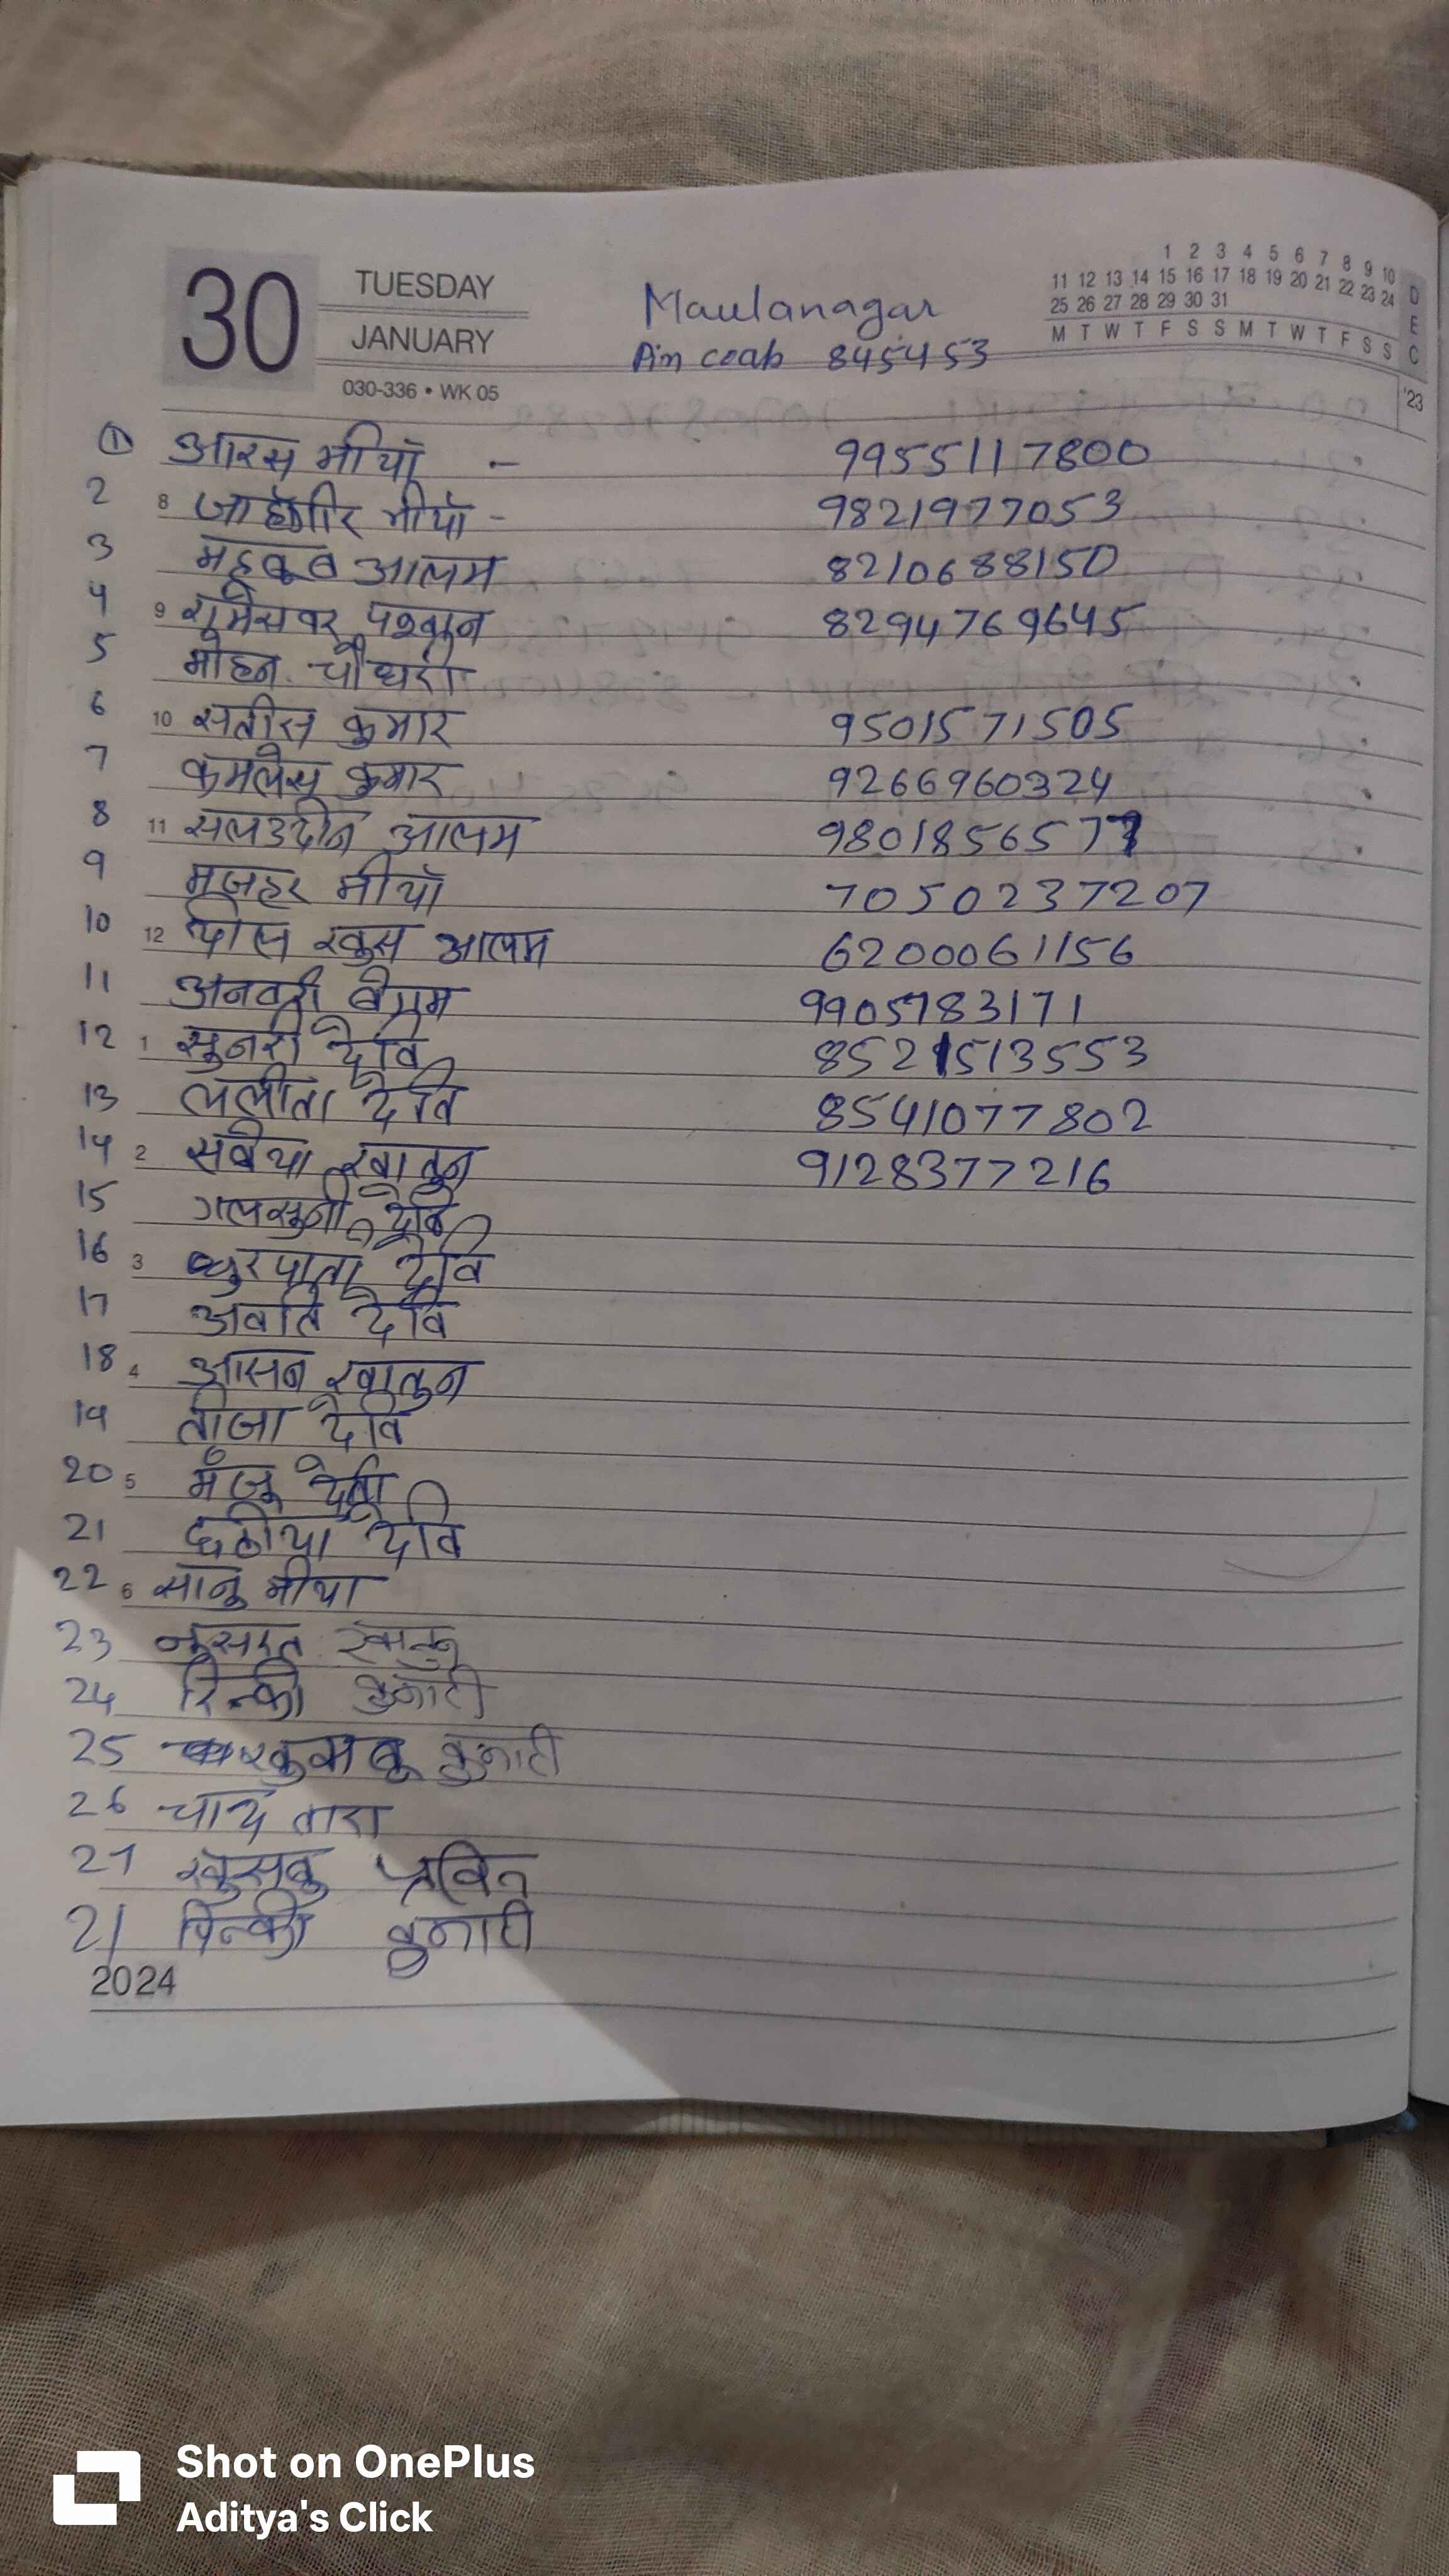 30 TUESDAY
JANUARY
030-336 • WK 05
Maulanagar
Pin coab 845453
1 2 3 4 5 6 7 8 9 10
11 12 13 14 15 16 17 18 19 20 21 22 23 24
25 26 27 28 29 30 31
M T W T F S S M T W T F S S
DEC '23
① आरस मीयाँ - 9955117800
2 8 जाहाँगीर मीयाँ - 9821977053
3 महबुब आलम 8210688150
4 9 8294769645
5 मोहन चौधरी
6 10 सतीस कुमार 9501571505
7 कमलेस कुमार 9266960324
8 11 सलउदीन आलम 9801856577
9 मजहर मीयाँ 7050237207
10 12 दील खुस आलम 6200061156
11 अनवरी बेगम 9905783171
12 1 सुनरी देवि 8521513553
13 ललीता देवि 8541077802
14 2 सबेया खातुन 9128377216
15 देवि
16 3 देवि
17 देवि
18 4 आसन खातुन
19 तीजा देवि
20 5 मंजू देवी
21 छठीया देवि
22 6 सानु मीया
23 नुसरत खातुन
24 रिन्की कुमारी
25 कुमारी
26 चाद तारा
27 खुसबु प्रविन
21 पिन्की कुमारी
2024
Shot on OnePlus
Aditya's Click